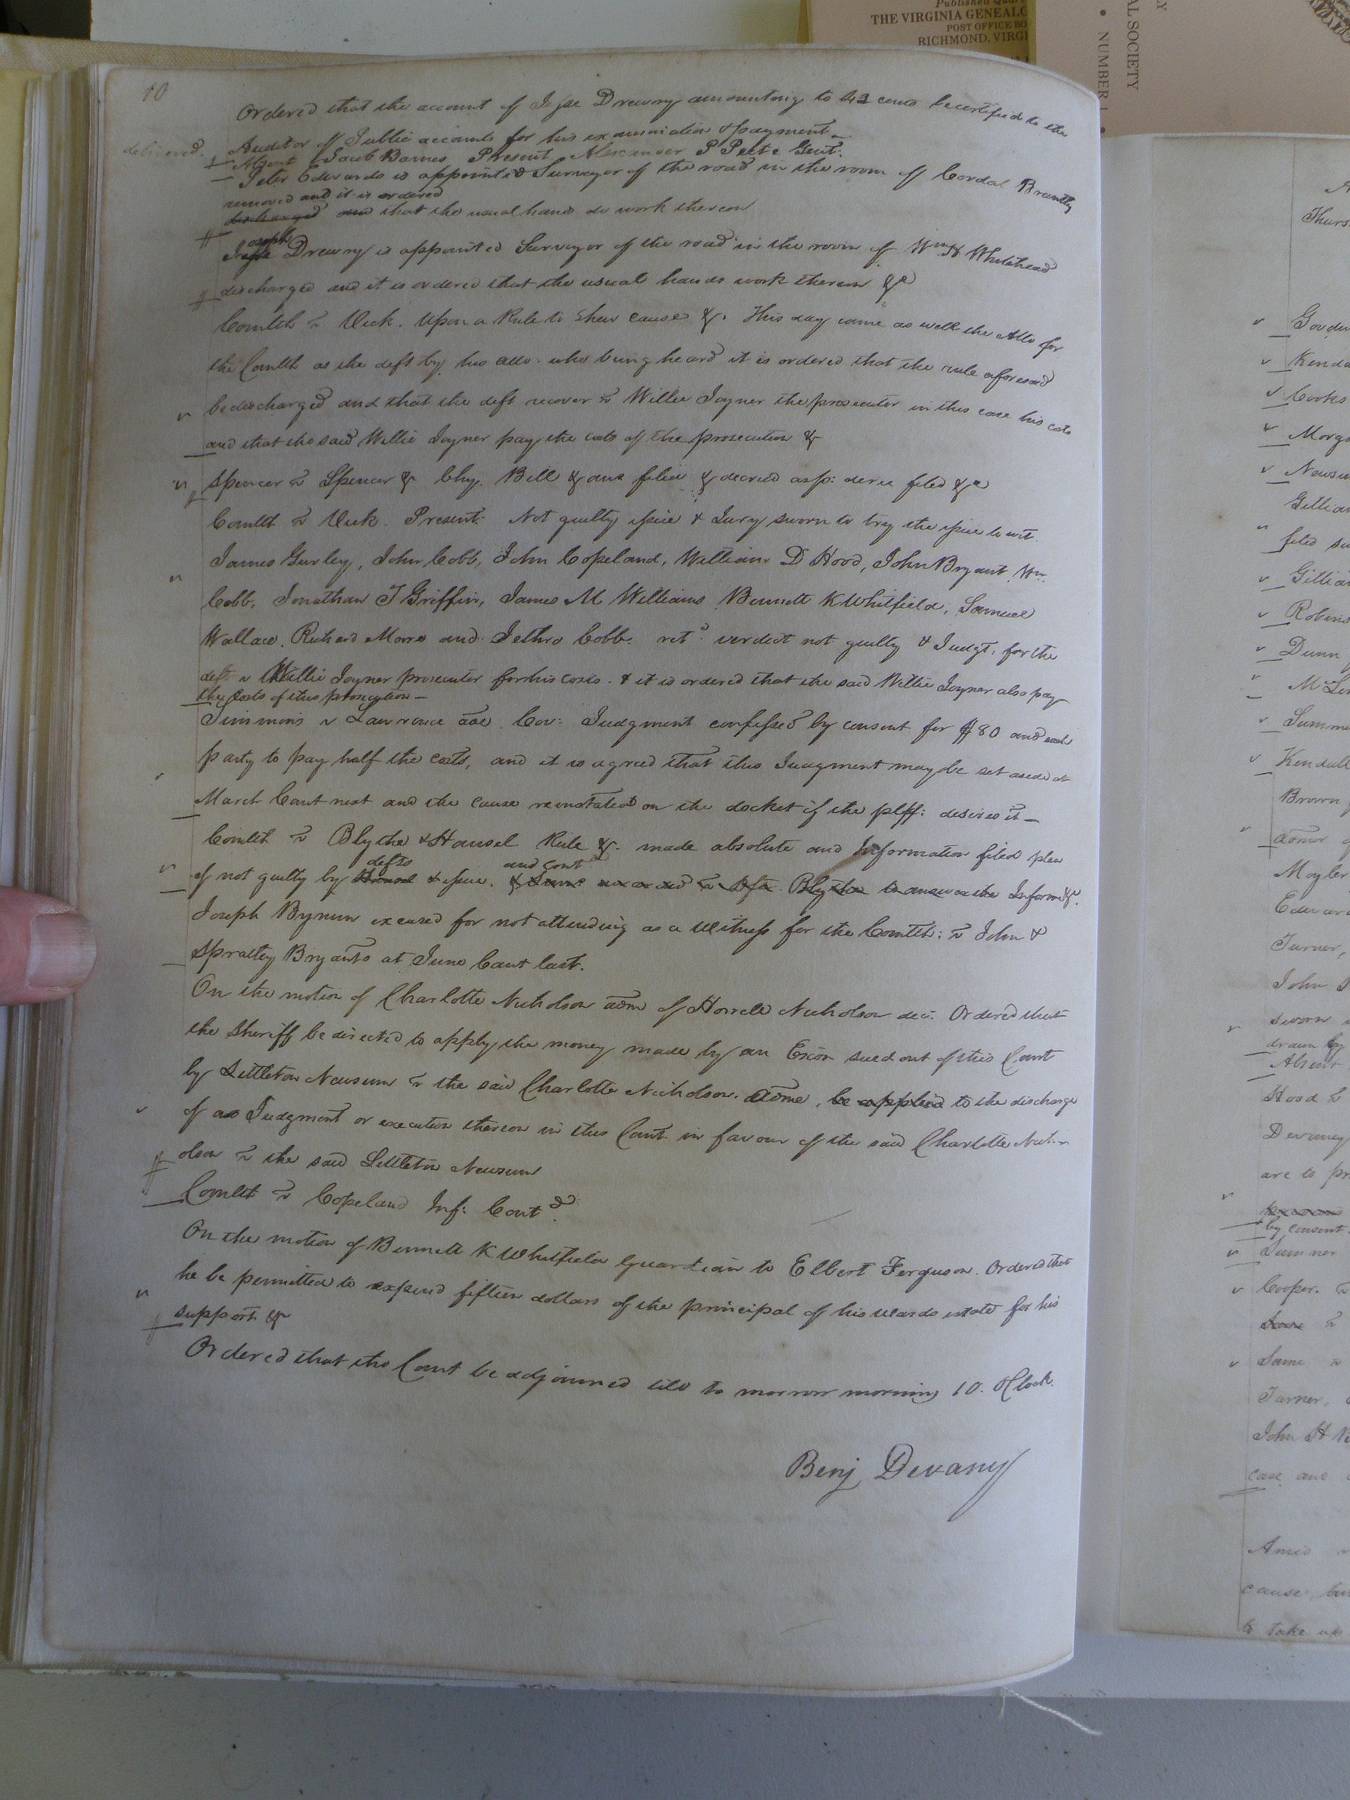 Published Quar
THE VIRGINIA GENEALO
POST OFFICE BO
RICHMOND, VIRGI
AL SOCIETY
• NUMBER 1 •
10
Ordered that the account of Jesse Drewry amounting to 42 cents be certified to the
delivered.
Auditor of Public accounts for his examination & payment
Absent Jacob Barnes Present Alexander P Peete Gent.
Peter Edwards is appointed Surveyor of the road in the room of Cordal Brantly
removed and it is ordered
discharged and that the usual hands do work thereon
oseph
Jesse Drewry is appointed Surveyor of the road in the room of Wm H Whitehead
discharged and it is ordered that the usual hands work thereon &c
Comlth vs Vick. Upon a Rule to shew cause &. This day came as well the Atto for
the Comlth as the deft by his atto. who being heard it is ordered that the rule aforesaid
be discharged and that the deft recover vs Willie Joyner the prosecutor in this case his costs
and that the said Willie Joyner pay the costs of the prosecution &
Spencer vs Spencer & Chy. Bill & ans filed & decreed as pr decree filed &c
Comlth vs Vick. Present. Not guilty issue & Jury sworn to try the issue to wit.
James Gurley, John Cobb, John Copeland, William D Hood, John Bryant, Wm.
Cobb, Jonathan T Griffin, James M Williams, Bennett K Whitfield, Samuel
Wallace, Richard Morris and Jethro Cobb. retd verdict not guilty & Judgt. for the
deft vs Willie Joyner prosecutor for his costs. & it is ordered that the said Willie Joyner also pay
the costs of this prosecution —
Simmons vs Lawrence Cov: Judgment confessed by consent for $80 and each
party to pay half the costs, and it is agreed that this Judgment may be set aside at
March Court next and the cause reinstated on the docket if the plff: desires it —
Comlth vs Blythe & Hansel Rule &. made absolute and Information filed plea
defts and contd
of not guilty by & issue. Blythe to answer the Inform &c.
Joseph Bynum excused for not attending as a Witness for the Comlth: vs John &
Spratley Bryants at June Court last.
On the motion of Charlotte Nicholson adm of Howell Nicholson dec. Ordered that
the Sheriff be directed to apply the money made by an Exion sued out of this Court
by Littleton Newsum vs the said Charlotte Nicholson. Adme, be applied to the discharge
of a Judgment or execution thereon in this Court in favour of the said Charlotte Nich-
olson vs the said Littleton Newsum
Comlth vs Copeland Inf: Contd.
On the motion of Bennett K Whitfield Guardian to Elbert Ferguson. Ordered that
he be permitted to expend fifteen dollars of the principal of his wards estate for his
support &
Ordered that the Court be adjourned till to morrow morning 10. OClock.
Benj Devany
Thurs
Kenda
Cocks
Morga
Newsu
filed
Gillia
Robins
Dunn
Summe
Kendall
Brown
Moyler
Edward
Turner,
John
sworn
drawn by
Absent
Hood vs
Devany
are to pr
by consent
Sumner
Cooper. vs
Same vs
Turner,
John H
case and
Amis
cause,
to take up